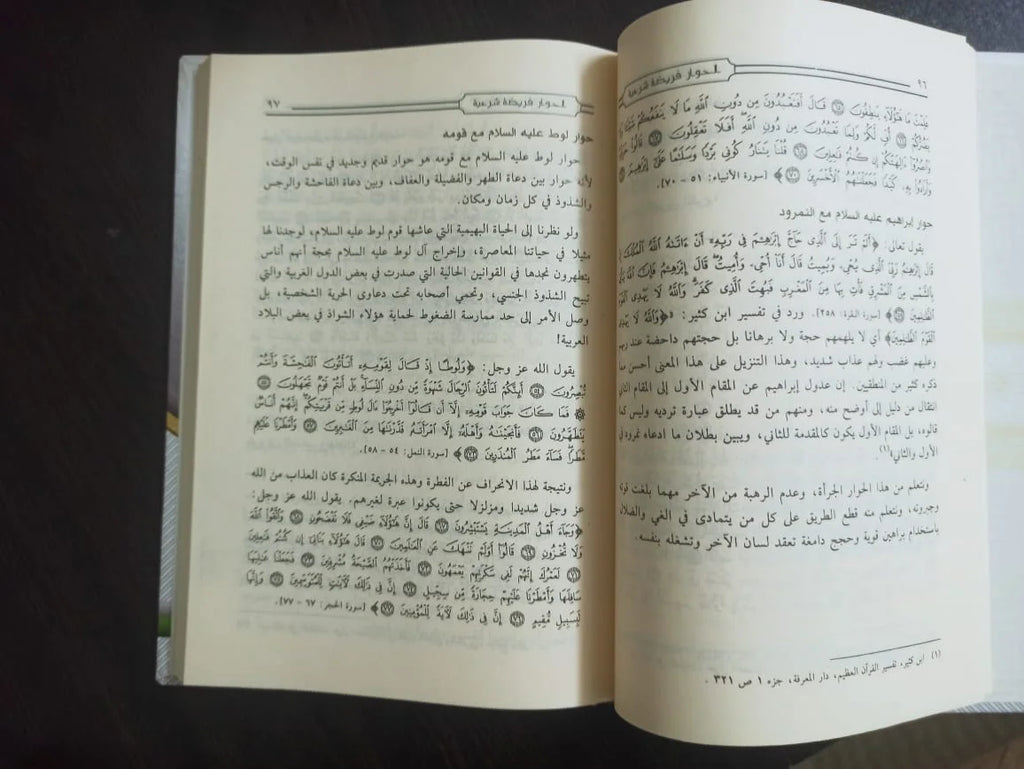 ٩٦
الحوار فريضة شرعية
عَلِمْتَ مَا هَٰٓؤُلَآءِ يَنطِقُونَ ۝٦٥ قَالَ أَفَتَعْبُدُونَ مِن دُونِ ٱللَّهِ مَا لَا يَنفَعُكُمْ شَيْـًٔا وَلَا
يَضُرُّكُمْ ۝٦٦ أُفٍّ لَّكُمْ وَلِمَا تَعْبُدُونَ مِن دُونِ ٱللَّهِ أَفَلَا تَعْقِلُونَ ۝٦٧ قَالُوا۟ حَرِّقُوهُ
وَٱنصُرُوٓا۟ ءَالِهَتَكُمْ إِن كُنتُمْ فَٰعِلِينَ ۝٦٨ قُلْنَا يَٰنَارُ كُونِى بَرْدًا وَسَلَٰمًا عَلَىٰٓ إِبْرَٰهِيمَ ۝٦٩
وَأَرَادُوا۟ بِهِۦ كَيْدًا فَجَعَلْنَٰهُمُ ٱلْأَخْسَرِينَ ۝٧٠﴾ [سورة الأنبياء: ٥١ - ٧٠].
حوار إبراهيم عليه السلام مع النمرود
يقول تعالى: ﴿أَلَمْ تَرَ إِلَى ٱلَّذِى حَآجَّ إِبْرَٰهِـۧمَ فِى رَبِّهِۦٓ أَنْ ءَاتَىٰهُ ٱللَّهُ ٱلْمُلْكَ إِذْ
قَالَ إِبْرَٰهِـۧمُ رَبِّىَ ٱلَّذِى يُحْىِۦ وَيُمِيتُ قَالَ أَنَا۠ أُحْىِۦ وَأُمِيتُ قَالَ إِبْرَٰهِـۧمُ فَإِنَّ ٱللَّهَ يَأْتِى
بِٱلشَّمْسِ مِنَ ٱلْمَشْرِقِ فَأْتِ بِهَا مِنَ ٱلْمَغْرِبِ فَبُهِتَ ٱلَّذِى كَفَرَ وَٱللَّهُ لَا يَهْدِى ٱلْقَوْمَ
ٱلظَّٰلِمِينَ ۝٢٥٨﴾ [سورة البقرة: ٢٥٨]. ورد في تفسير ابن كثير: «﴿وَٱللَّهُ لَا يَهْدِى
ٱلْقَوْمَ ٱلظَّٰلِمِينَ﴾ أي لا يلهمهم حجة ولا برهانا بل حجتهم داحضة عند ربهم
وعليهم غضب ولهم عذاب شديد، وهذا التنزيل على هذا المعنى أحسن مما
ذكره كثير من المنطقيين. إن عدول إبراهيم عن المقام الأول إلى المقام الثاني
انتقال من دليل إلى أوضح منه، ومنهم من قد يطلق عبارة ترديه وليس كما
قالوه، بل المقام الأول يكون كالمقدمة للثاني، ويبين بطلان ما ادعاه نمرود في
الأول والثاني»(١).
ونتعلم من هذا الحوار الجرأة، وعدم الرهبة من الآخر مهما بلغت قوته
وجبروته، ونتعلم منه قطع الطريق على كل من يتمادى في الغي والضلال
باستخدام براهين قوية وحجج دامغة تعقد لسان الآخر وتشغله بنفسه.
(١) ابن كثير، تفسير القرآن العظيم، دار المعرفة، جزء ١ ص ٣٢١.
الحوار فريضة شرعية
٩٧
حوار لوط عليه السلام مع قومه
حوار لوط عليه السلام مع قومه هو حوار قديم وجديد في نفس الوقت،
لأنه حوار بين دعاة الطهر والفضيلة والعفاف، وبين دعاة الفاحشة والرجس
والشذوذ في كل زمان ومكان.
ولو نظرنا إلى الحياة البهيمية التي عاشها قوم لوط عليه السلام، لوجدنا لها
مثيلا في حياتنا المعاصرة، وإخراج آل لوط عليه السلام بحجة أنهم أناس
يتطهرون نجدها في القوانين الحالية التي صدرت في بعض الدول الغربية والتي
تبيح الشذوذ الجنسي، وتحمي أصحابه تحت دعاوى الحرية الشخصية، بل
وصل الأمر إلى حد ممارسة الضغوط لحماية هؤلاء الشواذ في بعض البلاد
العربية!
يقول الله عز وجل: ﴿وَلُوطًا إِذْ قَالَ لِقَوْمِهِۦٓ أَتَأْتُونَ ٱلْفَٰحِشَةَ وَأَنتُمْ
تُبْصِرُونَ ۝٥٤ أَئِنَّكُمْ لَتَأْتُونَ ٱلرِّجَالَ شَهْوَةً مِّن دُونِ ٱلنِّسَآءِ بَلْ أَنتُمْ قَوْمٌ تَجْهَلُونَ ۝٥٥
۞ فَمَا كَانَ جَوَابَ قَوْمِهِۦٓ إِلَّآ أَن قَالُوٓا۟ أَخْرِجُوٓا۟ ءَالَ لُوطٍ مِّن قَرْيَتِكُمْ إِنَّهُمْ أُنَاسٌ
يَتَطَهَّرُونَ ۝٥٦ فَأَنجَيْنَٰهُ وَأَهْلَهُۥٓ إِلَّا ٱمْرَأَتَهُۥ قَدَّرْنَٰهَا مِنَ ٱلْغَٰبِرِينَ ۝٥٧ وَأَمْطَرْنَا عَلَيْهِم
مَّطَرًا فَسَآءَ مَطَرُ ٱلْمُنذَرِينَ ۝٥٨﴾ [سورة النمل: ٥٤ - ٥٨].
ونتيجة لهذا الانحراف عن الفطرة وهذه الجريمة المنكرة كان العذاب من الله
عز وجل شديدا ومزلزلا حتى يكونوا عبرة لغيرهم. يقول الله عز وجل:
﴿وَجَآءَ أَهْلُ ٱلْمَدِينَةِ يَسْتَبْشِرُونَ ۝٦٧ قَالَ إِنَّ هَٰٓؤُلَآءِ ضَيْفِى فَلَا تَفْضَحُونِ ۝٦٨ وَٱتَّقُوا۟ ٱللَّهَ
وَلَا تُخْزُونِ ۝٦٩ قَالُوٓا۟ أَوَلَمْ نَنْهَكَ عَنِ ٱلْعَٰلَمِينَ ۝٧٠ قَالَ هَٰٓؤُلَآءِ بَنَاتِىٓ إِن كُنتُمْ فَٰعِلِينَ
۝٧١ لَعَمْرُكَ إِنَّهُمْ لَفِى سَكْرَتِهِمْ يَعْمَهُونَ ۝٧٢ فَأَخَذَتْهُمُ ٱلصَّيْحَةُ مُشْرِقِينَ ۝٧٣ فَجَعَلْنَا عَٰلِيَهَا
سَافِلَهَا وَأَمْطَرْنَا عَلَيْهِمْ حِجَارَةً مِّن سِجِّيلٍ ۝٧٤ إِنَّ فِى ذَٰلِكَ لَءَايَٰتٍ لِّلْمُتَوَسِّمِينَ ۝٧٥ وَإِنَّهَا
لَبِسَبِيلٍ مُّقِيمٍ ۝٧٦ إِنَّ فِى ذَٰلِكَ لَءَايَةً لِّلْمُؤْمِنِينَ ۝٧٧﴾ [سورة الحجر: ٦٧ - ٧٧].